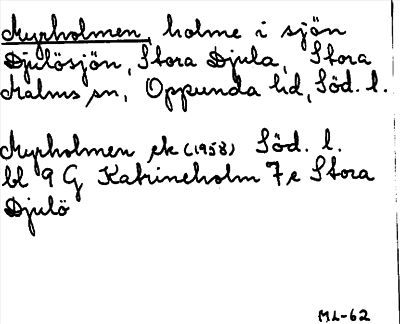 Myrholmen, holme i sjön
Djulösjön, Stora Djula, Stora
Malms sn, Oppunda hd, Söd. l.
Myrholmen ek (1958) Söd. l.
bl 9 G Katrineholm 7 e Stora
Djulö
ML-62